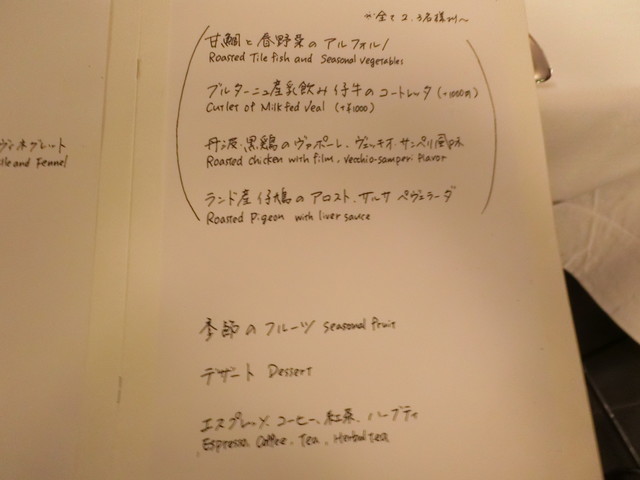 全て2、3名様から
甘鯛と春野菜のアルフォルノ
Roasted Tile fish and Seasonal vegetables
ブルターニュ産乳飲み仔牛のコートレッタ (+1000円)
Cutlet of Milk fed veal (+¥1000)
丹波黒鶏のヴァポーレ、ヴェッキオ・サンペリ風味
Roasted chicken with film, vecchio-samperi flavor
ランド産仔鳩のアロスト、サルサ ペヴェラーダ
Roasted Pigeon with liver sauce
ヴィネグレット
and Fennel
季節のフルーツ Seasonal fruit
デザート Dessert
エスプレッソ、コーヒー、紅茶、ハーブティ
Espresso, Coffee, Tea, Herbal tea